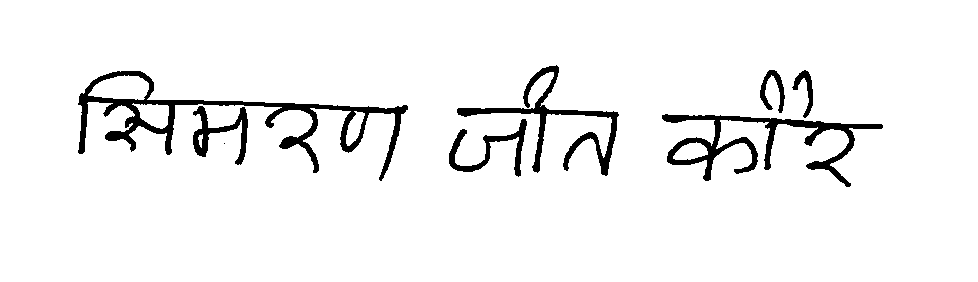 सिमरण जीत कौर